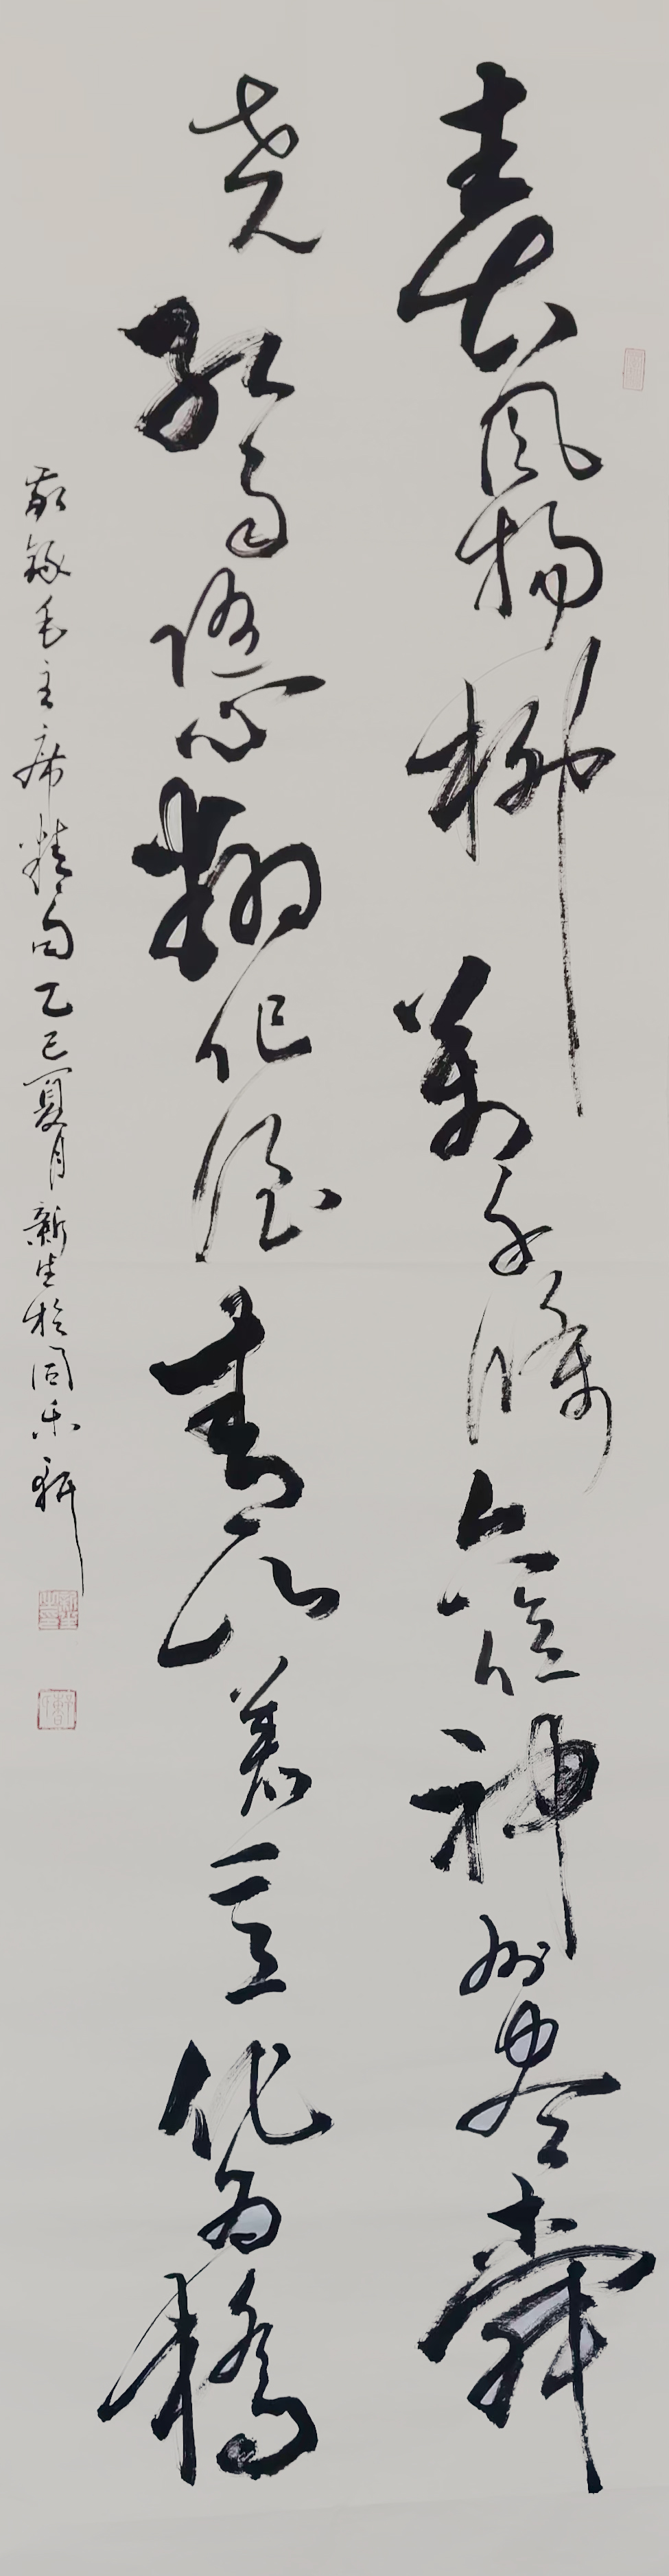 春风杨柳萬千條六億神州尽舜
尧红雨随心翻作浪青山着意化为橋
敬録毛主席精句乙巳夏月新生於同乐軒